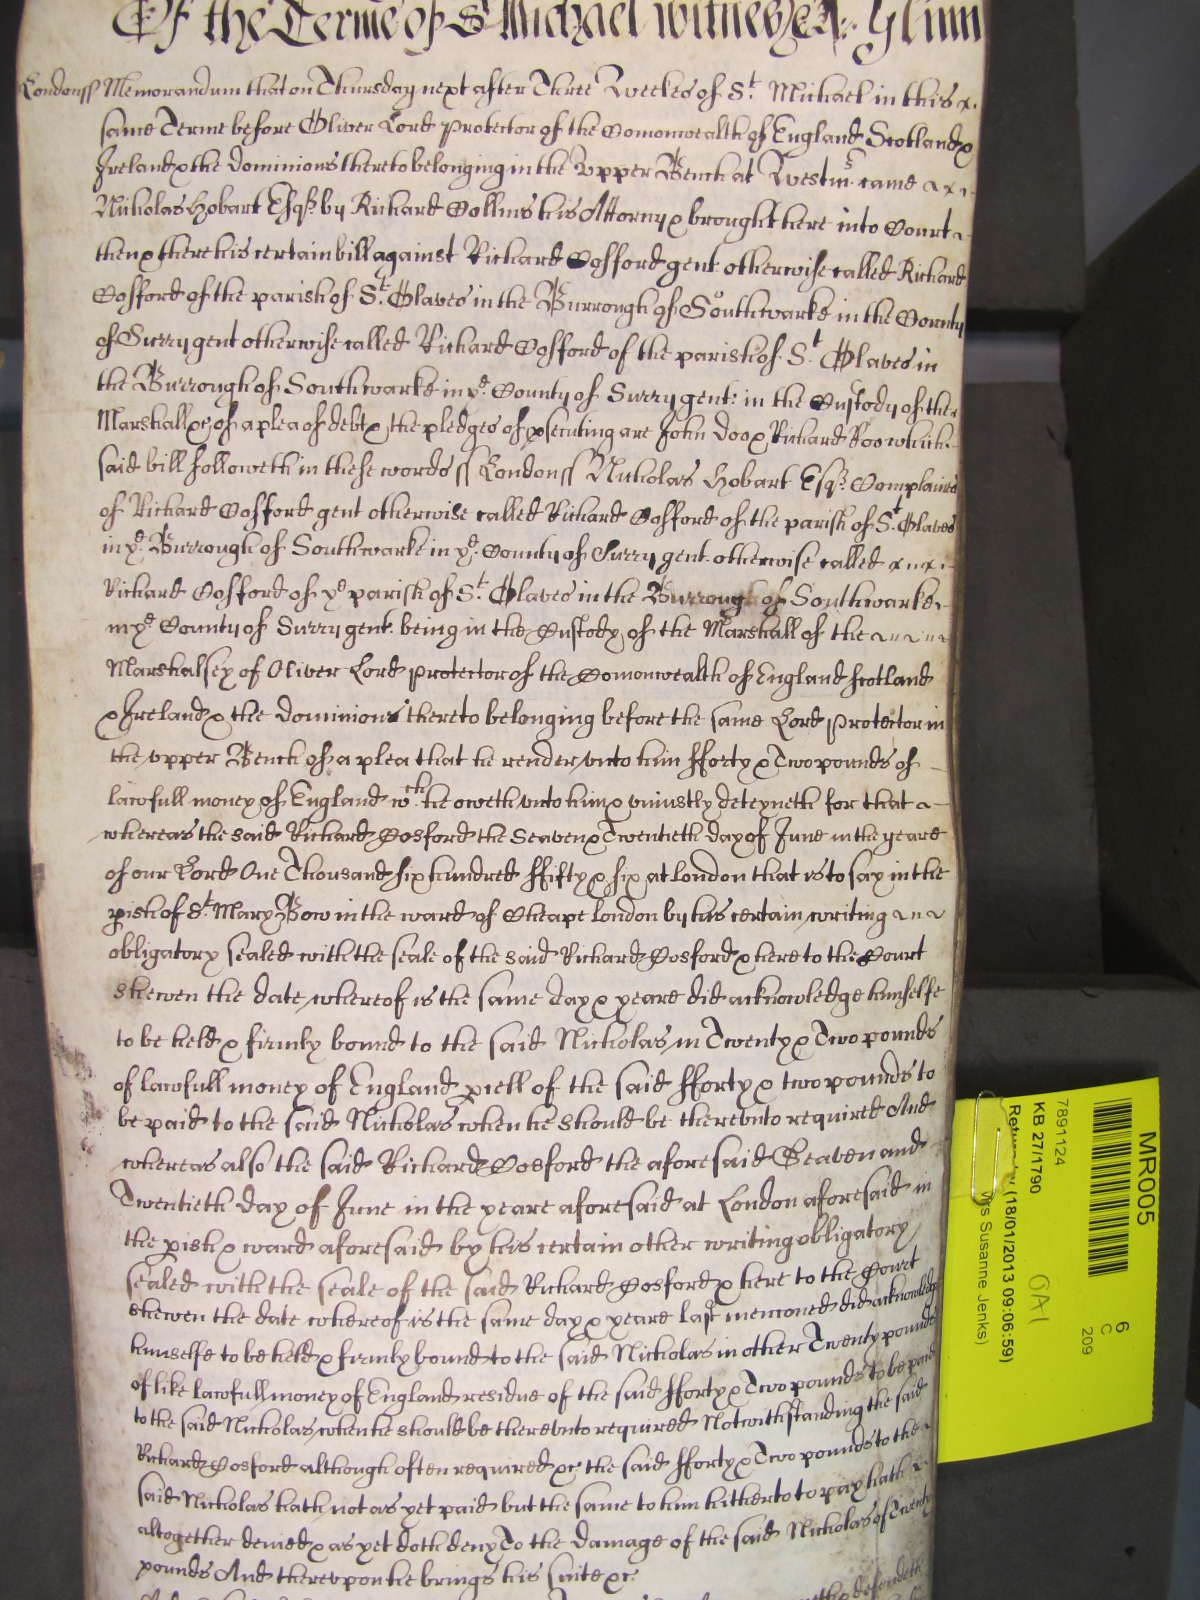 Of the Terme of St Michael witnes Jo: Glinn
Londonss Memorandum that on Thursday next after Three Weekes of St. Michael in this
same Terme before Oliver Lord Protector of the Comonwealth of England Scotland &
Ireland & the dominions thereto belonging in the Upper Bench at Westmr came
Nicholas Hobart Esqr by Richard Collins his Attorny & brought here into Court
then & there his certain bill against Richard Cosford gent otherwise called Richard
Cosford of the parish of St. Olaves in the Burrough of Southwarke in the County
of Surry gent otherwise called Richard Cosford of the parish of St Olaves in
the Burrough of Southwarke in ye County of Surry gent: in the Custody of the
Marshall &c of a plea of debt & the pledges of psecuting are John Doo & Richard Roo which
said bill followeth in these words ss Londonss Nicholas Hobart Esqr Complaines
of Richard Cosford gent otherwise called Richard Cosford of the parish of St Olaves
in ye Burrough of Southwarke in ye County of Surry gent otherwise called
Richard Cosford of ye parish of St. Olaves in the Burrough of Southwarke
in ye County of Surry gent. being in the Custody of the Marshall of the
Marshalsey of Oliver Lord Protector of the Comonwealth of England Scotland
& Ireland & the dominions thereto belonging before the same Lord Protector in
the upper Bench of a plea that he render unto him fforty & Two pounds of
lawfull money of England wch he oweth unto him & uniustly deteyneth for that
whereas the said Richard Cosford the Seaven & Twentieth day of June in the yeare
of our Lord One Thousand six hundred ffifty & six at London that is to say in the
pish of St Mary Bow in the ward of Cheape London by his certain writing
obligatory sealed with the seale of the said Richard Cosford & here to the Court
shewen the date whereof is the same day & yeare did acknowledge himselfe
to be held & firmly bound to the said Nicholas in Twenty & Two pounds
of lawfull money of England pcell of the said fforty & two pounds to
be paid to the said Nicholas when he should be thereunto required And
whereas also the said Richard Cosford the aforesaid Seaven and
Twentieth day of June in the yeare aforesaid at London aforesaid in
the pish & ward aforesaid by his certain other writing obligatory
sealed with the seale of the said Richard Cosford & here to the Court
shewen the date whereof is the same day & yeare last menconed did acknowledge
himselfe to be held & firmly bound to the said Nicholas in other Twenty pounds
of like lawfull money of England residue of the said fforty & Two pounds to be paid
to the said Nicholas when he should be thereunto required Notwithstanding the said
Richard Cosford although often required &c the said fforty & Two pounds to the
said Nicholas hath not as yet paid but the same to him hitherto to pay hath
altogether denied & as yet doth deny To the damage of the said Nicholas of Twenty
pounds And thereupon he brings his suite &c
defendeth
MR005
6
C
209
7891124
KB 27/1790
(18/01/2013 09:06:59)
Susanne Jenks)